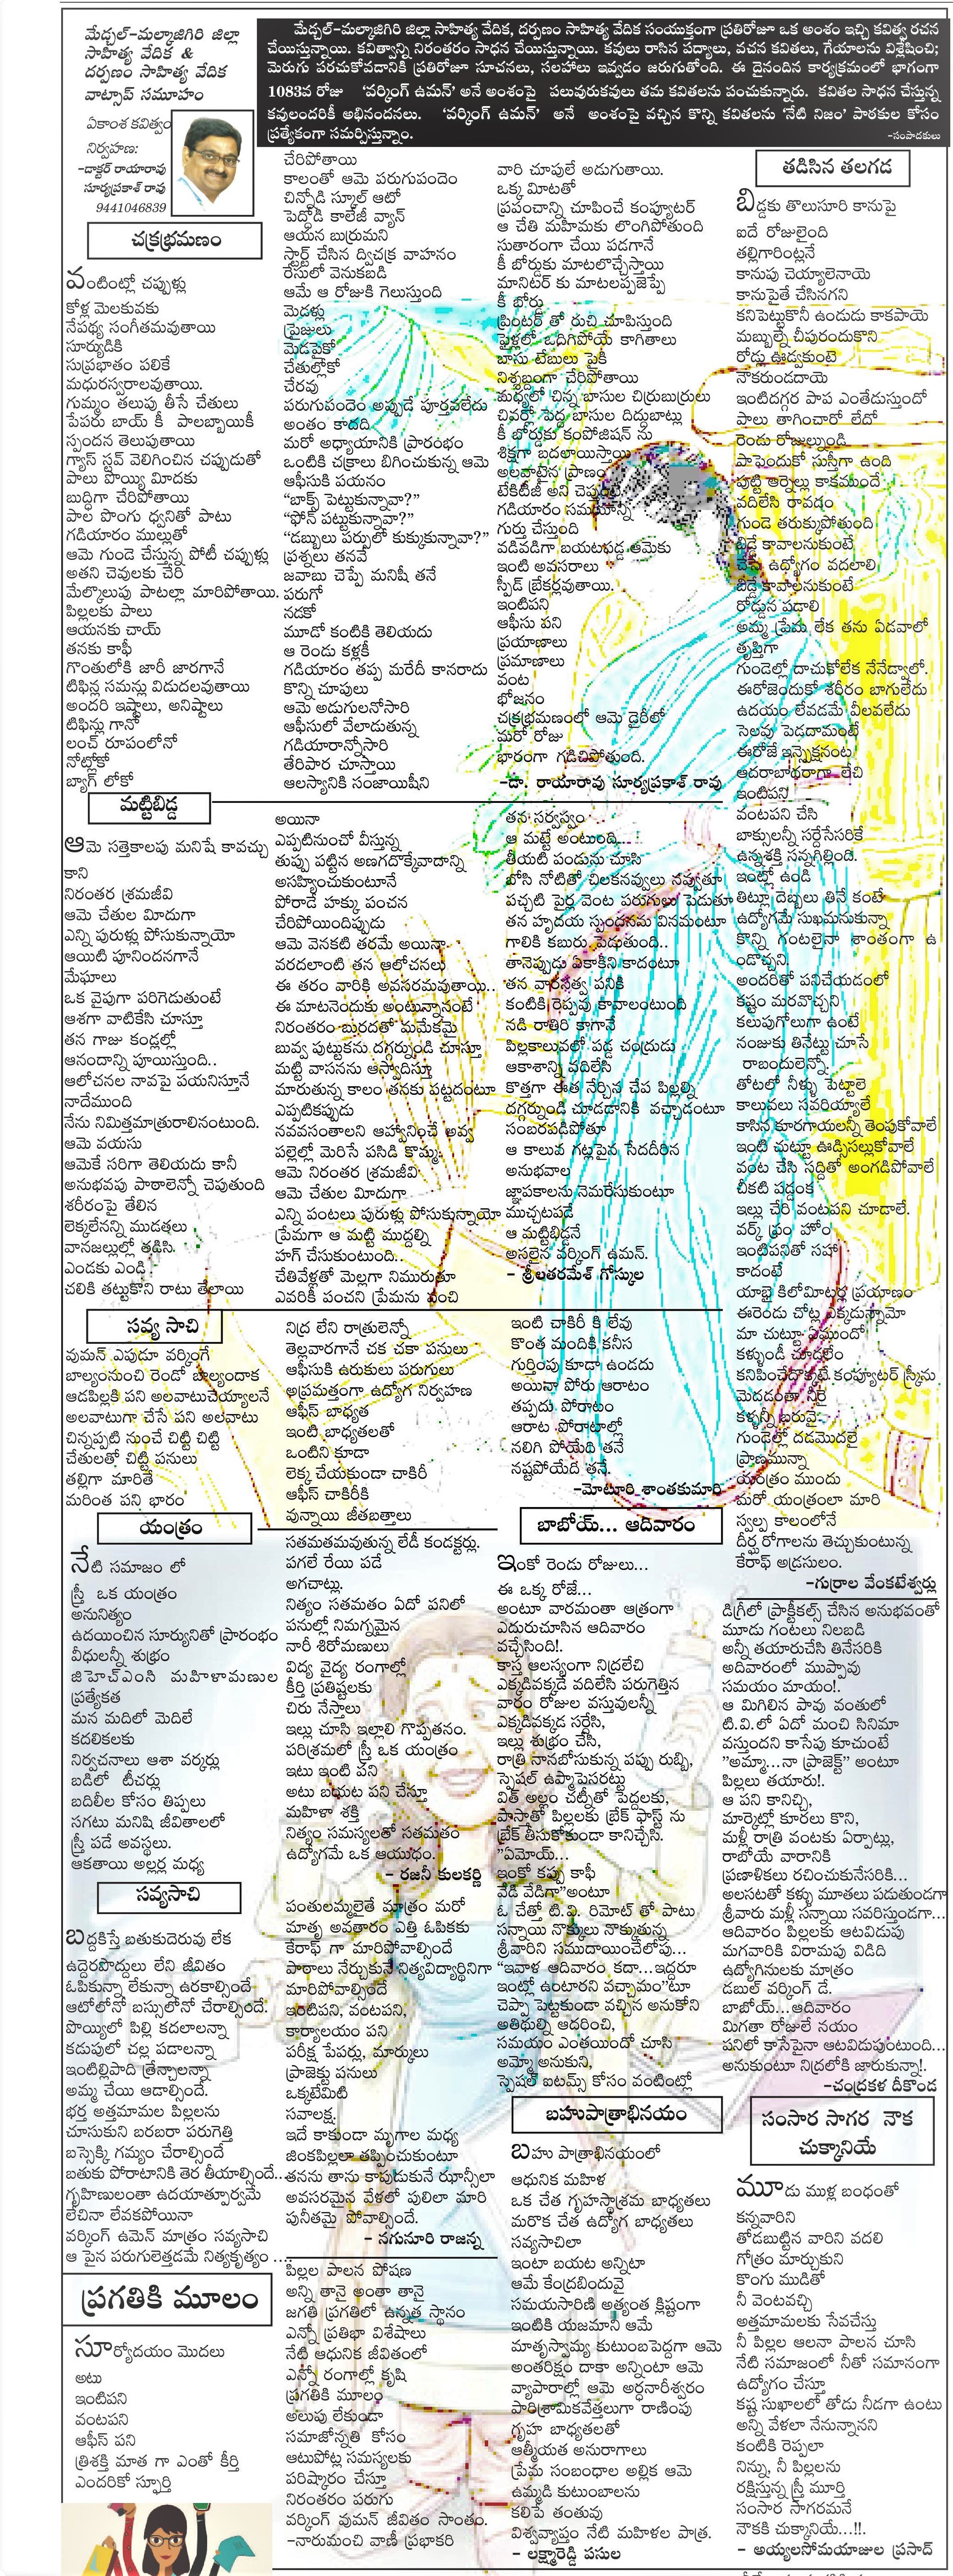 మేడ్చల్-మల్కాజిగిరి జిల్లా
సాహిత్య వేదిక &
దర్పణం సాహిత్య వేదిక
వాట్సాప్ సమూహం
ఏకాంశ కవిత్వం
నిర్వహణ:
-డాక్టర్ రాయారావు
సూర్యప్రకాశ్ రావు
9441046839
మేడ్చల్-మల్కాజిగిరి జిల్లా సాహిత్య వేదిక, దర్పణం సాహిత్య వేదిక సంయుక్తంగా ప్రతిరోజూ ఒక అంశం ఇచ్చి కవిత్వ రచన
చేయిస్తున్నాయి. కవిత్వాన్ని నిరంతరం సాధన చేయిస్తున్నాయి. కవులు రాసిన పద్యాలు, వచన కవితలు, గేయాలను విశ్లేషించి;
మెరుగు పరచుకోవడానికి ప్రతిరోజూ సూచనలు, సలహాలు ఇవ్వడం జరుగుతోంది. ఈ దైనందిన కార్యక్రమంలో భాగంగా
1083వ రోజు 'వర్కింగ్ ఉమన్' అనే అంశంపై పలువురుకవులు తమ కవితలను పంచుకున్నారు. కవితల సాధన చేస్తున్న
కవులందరికీ అభినందనలు. 'వర్కింగ్ ఉమన్' అనే అంశంపై వచ్చిన కొన్ని కవితలను 'నేటి నిజం' పాఠకుల కోసం
ప్రత్యేకంగా సమర్పిస్తున్నాం.
-సంపాదకులు
చక్రభ్రమణం
వంటింట్లో చప్పుళ్లు
కోళ్ల మెలకువకు
నేపథ్య సంగీతమవుతాయి
సూర్యుడికి
సుప్రభాతం పలికే
మధురస్వరాలవుతాయి.
గుమ్మం తలుపు తీసే చేతులు
పేపరు బాయ్ కీ పాలబ్బాయికీ
స్పందన తెలుపుతాయి
గ్యాస్ స్టవ్ వెలిగించిన చప్పుడుతో
పాలు పొయ్యి మీదకు
బుద్ధిగా చేరిపోతాయి
పాల పొంగు ధ్వనితో పాటు
గడియారం ముల్లుతో
ఆమె గుండె చేస్తున్న పోటీ చప్పుళ్లు
అతని చెవులకు చేరి
మేల్కొలుపు పాటల్లా మారిపోతాయి.
పిల్లలకు పాలు
ఆయనకు చాయ్
తనకు కాఫీ
గొంతులోకి జారీ జారగానే
టిఫిన్ల సమన్లు విడుదలవుతాయి
అందరి ఇష్టాలు, అనిష్టాలు
టిఫిన్లు గానో
లంచ్ రూపంలోనో
నోట్లోకో
బ్యాగ్ లోకో
చేరిపోతాయి
కాలంతో ఆమె పరుగుపందెం
చిన్నోడి స్కూల్ ఆటో
పెద్దోడి కాలేజీ వ్యాన్
ఆయన బుర్రుమని
స్టార్ట్ చేసిన ద్విచక్ర వాహనం
రేసులో వెనుకబడి
ఆమే ఆ రోజుకి గెలుస్తుంది
మెడళ్లు
ప్రైజులు
మెడపైకో
చేతుల్లోకో
చేరవు
పరుగుపందెం అప్పుడే పూర్తవలేదు
అంతం కాదది.
మరో అధ్యాయానికి ప్రారంభం
ఒంటికి చక్రాలు బిగించుకున్న ఆమె
ఆఫీసుకి పయనం
"బాక్స్ పెట్టుకున్నావా?"
"ఫోన్ పట్టుకున్నావా?"
"డబ్బులు పర్సులో కుక్కుకున్నావా?"
ప్రశ్నలు తనవే
జవాబు చెప్పే మనిషీ తనే
పరుగో
నడకో
మూడో కంటికి తెలియదు
ఆ రెండు కళ్లకీ
గడియారం తప్ప మరేదీ కానరాదు
కొన్ని చూపులు
ఆమె అడుగులనోసారి
ఆఫీసులో వేలాడుతున్న
గడియారాన్నోసారి
తేరిపార చూస్తాయి
ఆలస్యానికి సంజాయిషీని
వారి చూపులే అడుగుతాయి.
ఒక్క మీటతో
ప్రపంచాన్ని చూపించే కంప్యూటర్
ఆ చేతి మహిమకు లొంగిపోతుంది
సుతారంగా చేయి పడగానే
కీ బోర్డుకు మాటలొచ్చేస్తాయి
మానిటర్ కు మాటలప్పజెప్పే
కీ బోర్డు
ప్రింటర్ తో రుచి చూపిస్తుంది
ఫైళ్లలో ఒదిగిపోయే కాగితాలు
బాసు టేబులు పైకి
నిశ్శబ్దంగా చేరిపోతాయి
మధ్యలో చిన్న బాసుల చిర్రుబుర్రులు
చివర్లో పెద్ద బాసుల దిద్దుబాట్లు
కీ బోర్డుకు కంపోజిషన్ ను
శిక్షగా బదలాయిస్తాయి
అలవాటైన ప్రాణం
టేకిటీజీ అని చెప్తుంటే
గడియారం సమయాన్ని
గుర్తు చేస్తుంది
వడివడిగా బయటపడ్డ ఆమెకు
ఇంటి అవసరాలు
స్పీడ్ బ్రేకర్లవుతాయి.
ఇంటిపని
ఆఫీసు పని
ప్రయాణాలు
ప్రమాణాలు
వంట
భోజనం
చక్రభ్రమణంలో ఆమె డైరీలో
మరో రోజు
భారంగా గడిచిపోతుంది.
-డా. రాయారావు సూర్యప్రకాశ్ రావు
తడిసిన తలగడ
బిడ్డకు తొలుసూరి కానుపై
ఐదే రోజులైంది
తల్లిగారింట్లనే
కానుపు చెయ్యాలెనాయె
కానుపైతే చేసినగని
కనిపెట్టుకొనీ ఉండుడు కాకపాయె
మబ్బుల్నే చీపురందుకొని
రోడ్లు ఊడ్వకుంటె
నౌకరుండదాయె
ఇంటిదగ్గర పాప ఎంతేడుస్తుందో
పాలు తాగించారో లేదో
రెండు రోజుల్నుండి
పాపెందుకో సుస్తీగా ఉంది
పుట్టి ఆర్నెల్లు కాకముందే
వదిలేసి రావడం
గుండె తరుక్కుపోతుంది
బిడ్డే కావాలనుకుంటే
చేసే ఉద్యోగం వదలాలి
బిడ్డే కావాలనుకుంటే
రోడ్డున పడాలి
అమ్మ ప్రేమ లేక తను ఏడవాలో
తృప్తిగా
గుండెల్లో దాచుకోలేక నేనేడ్వాలో.
ఈరోజెందుకో శరీరం బాగులేదు
ఉదయం లేవడమే వీలవలేదు
సెలవు పెడదామంటే
ఈరోజే ఇన్స్పెక్షనంట
ఆదరాబాదరాగా లేచి
ఇంటిపని
వంటపని చేసి
బాక్సులన్నీ సర్దేసేసరికే
ఉన్నశక్తి సన్నగిల్లింది.
ఇంట్లో ఉండి
తిట్లూ దెబ్బలు తినే కంటే
ఉద్యోగమే సుఖమనుకున్నా
కొన్ని గంటలైనా శాంతంగా ఉ
ండొచ్చని.
అందరితో పనిచేయడంలో
కష్టం మరవొచ్చని
కలుపుగోలుగా ఉంటే
నంజుకు తినేట్టు చూసే
రాబందులెన్నో
తోటలో నీళ్ళు పెట్టాలె
కాలువలు సవరియ్యాలే
కాసిన కూరగాయలన్నీ తెంపుకోవాలే
ఇంటి చుట్టూ ఊడ్సిసల్లుకోవాలే
వంట చేసి సద్దితో అంగడిపోవాలే
చీకటి పడ్డంక
ఇల్లు చేరి వంటపని చూడాలే.
వర్క్ ఫ్రం హోం
ఇంటిపనితో సహా
కాదంటే
యాభై కిలోమీటర్ల ప్రయాణం
ఈరెండు చోట్ల ఎక్కడున్నామో
మా చుట్టూ ఏముందో
కళ్ళుండీ చూడలేం
కనిపించేదొక్కటే కంప్యూటర్ స్క్రీను
మెదడంతా నీరై
కళ్ళన్నీ బరువై
గుండెల్లో దడమొదలై
ప్రాణమున్నా
యంత్రం ముందు
మరో యంత్రంలా మారి
స్వల్ప కాలంలోనే
దీర్ఘ రోగాలను తెచ్చుకుంటున్న
కేరాఫ్ అడ్రసులం.
-గుర్రాల వేంకటేశ్వర్లు
మట్టిబిడ్డ
ఆమె సత్తెకాలపు మనిషే కావచ్చు
కాని
నిరంతర శ్రమజీవి
ఆమె చేతుల మీదుగా
ఎన్ని పురుళ్లు పోసుకున్నాయో
ఆయిటి పూనిందనగానే
మేఘాలు
ఒక వైపుగా పరిగెడుతుంటే
ఆశగా వాటికేసి చూస్తూ
తన గాజు కండ్లల్లో
ఆనందాన్ని పూయిస్తుంది..
ఆలోచనల నావపై పయనిస్తూనే
నాదేముంది
నేను నిమిత్తమాత్రురాలినంటుంది.
ఆమె వయసు
ఆమెకే సరిగా తెలియదు కానీ
అనుభవపు పాఠాలెన్నో చెపుతుంది
శరీరంపై తేలిన
లెక్కలేనన్ని ముడతలు
వానజల్లుల్లో తడిసి
ఎండకు ఎండి
చలికి తట్టుకొని రాటు తేలాయి
అయినా
ఎప్పటినుంచో వీస్తున్న
తుప్పు పట్టిన అణగదొక్కేవాదాన్ని
అసహ్యించుకుంటూనే
పోరాడే హక్కు పంచన
చేరిపోయిందిప్పుడు
ఆమె వెనకటి తరమే అయినా
వరదలాంటి తన ఆలోచనలు
ఈ తరం వారికి అవసరమవుతాయి..
ఈ మాటనెందుకు అంటున్నానంటే
నిరంతరం బురదతో మమేకమై
బువ్వ పుట్టుకను దగ్గర్నుండి చూస్తూ
మట్టి వాసనను ఆస్వాదిస్తూ
మారుతున్న కాలం తనకు పట్టదంటూ
ఎప్పటికప్పుడు
నవవసంతాలని ఆహ్వానించే అవ్వ
పల్లెల్లో మెరిసే పసిడి కొమ్మ.
ఆమె నిరంతర శ్రమజీవి
ఆమె చేతుల మీదుగా
ఎన్ని పంటలు పురుళ్లు పోసుకున్నాయో
ప్రేమగా ఆ మట్టి ముద్దల్ని
హగ్ చేసుకుంటుంది..
చేతివేళ్లతో మెల్లగా నిమురుతూ
ఎవరికీ పంచని ప్రేమను పంచి
తన సర్వస్వం
ఆ మట్టే అంటుంది..
తీయటి పండును చూసి
బోసి నోటితో చిలకనవ్వులు నవ్వుతూ
పచ్చటి పైర్ల వెంట పరుగులు పెడుతూ
తన హృదయ స్పందనను వినమంటూ
గాలికి కబురు పెడుతుంది..
తానెప్పుడు ఏకాకిని కాదంటూ
తన వారసత్వ పనికి
కంటికి రెప్పవు కావాలంటుంది
నడి రాతిరి కాగానే
పిల్లకాలువలో పడ్డ చంద్రుడు
ఆకాశాన్ని వదిలేసి
కొత్తగా ఈత నేర్చిన చేప పిల్లల్ని
దగ్గర్నుండి చూడడానికి వచ్చాడంటూ
సంబరపడిపోతూ
ఆ కాలువ గట్లపైన సేదదీరిన
అనుభవాల
జ్ఞాపకాలను నెమరేసుకుంటూ
ముచ్చటపడే
ఆ మట్టిబిడ్డనే
అసలైన వర్కింగ్ ఉమన్.
- శ్రీలతరమేశ్ గోస్కుల
సవ్య సాచి
వుమన్ ఎపుడూ వర్కింగే
బాల్యంనుంచి రెండో బాల్యందాక
ఆడపిల్లకి పని అలవాటుచెయ్యాలనే
అలవాటుగా చేసే పని అలవాటు
చిన్నప్పటి నుంచే చిట్టి చిట్టి
చేతులతో చిట్టి పనులు
తల్లిగా మారితే
మరింత పని భారం
నిద్ర లేని రాత్రులెన్నో
తెల్లవారగానే చక చకా పనులు
ఆఫీసుకి ఉరుకులు పరుగులు
అప్రమత్తంగా ఉద్యోగ నిర్వహణ
ఆఫీస్ బాధ్యత
ఇంటి బాధ్యతలతో
ఒంటిని కూడా
లెక్క చేయకుండా చాకిరీ
ఆఫీస్ చాకిరీకి
వున్నాయి జీతబత్తాలు
ఇంటి చాకిరీ కి లేవు
కొంత మందికి కనీస
గుర్తింపు కూడా ఉండదు
అయినా పోరు ఆరాటం
తప్పదు పోరాటం
ఆరాట పోరాటాల్లో
నలిగి పోయేది తనే
నష్టపోయేది తనే.
-మోటూరి శాంతకుమారి
యంత్రం
నేటి సమాజం లో
స్త్రీ ఒక యంత్రం
అనునిత్యం
ఉదయించిన సూర్యునితో ప్రారంభం
వీధులన్నీ శుభ్రం
జిహెచ్ఎంసి మహిళామణుల
ప్రత్యేకత
మన మదిలో మెదిలే
కదలికలకు
నిర్వచనాలు ఆశా వర్కర్లు
బడిలో టీచర్లు
బదిలీల కోసం తిప్పలు
సగటు మనిషి జీవితాలలో
స్త్రీ పడే అవస్థలు.
ఆకతాయి అల్లర్ల మధ్య
సతమతమవుతున్న లేడీ కండక్టర్లు.
పగలే రేయి పడే
అగచాట్లు,
నిత్యం సతమతం ఏదో పనిలో
పనుల్లో నిమగ్నమైన
నారీ శిరోమణులు
విద్య వైద్య రంగాల్లో
కీర్తి ప్రతిష్టలకు
చిరు నేస్తాలు
ఇల్లు చూసి ఇల్లాలి గొప్పతనం.
పరిశ్రమలో స్త్రీ ఒక యంత్రం
ఇటు ఇంటి పని
అటు బయట పని చేస్తూ
మహిళా శక్తి
నిత్యం సమస్యలతో సతమతం
ఉద్యోగమే ఒక ఆయుధం.
- రజనీ కులకర్ణి
బాబోయ్... ఆదివారం
ఇంకో రెండు రోజులు...
ఈ ఒక్క రోజే...
అంటూ వారమంతా ఆత్రంగా
ఎదురుచూసిన ఆదివారం
వచ్చేసింది!.
కాస్త ఆలస్యంగా నిద్రలేచి
ఎక్కడివక్కడే వదిలేసి పరుగెత్తిన
వారం రోజుల వస్తువులన్నీ
ఎక్కడివక్కడ సర్దేసి,
ఇల్లు శుభ్రం చేసి,
రాత్రి నానబోసుకున్న పప్పు రుబ్బి,
స్పెషల్ ఉప్మాపెసరట్టు
విత్ అల్లం చట్నీతో పెద్దలకు,
పాస్తాతో పిల్లలకు బ్రేక్ ఫాస్ట్ ను
బ్రేక్ తీసుకోకుండా కానిచ్చేసి.
"ఏమోయ్...
ఇంకో కప్పు కాఫీ
వేడి వేడిగా"అంటూ
ఓ చేత్తో టి.వి. రిమోట్ తో పాటు
సన్నాయి నొక్కులు నొక్కుతున్న
శ్రీవారిని సముదాయించేలోపు...
"ఇవాళ ఆదివారం కదా...ఇద్దరూ
ఇంట్లో ఉంటారని వచ్చాము"టూ
చెప్పా పెట్టకుండా వచ్చిన అనుకోని
అతిథుల్ని ఆదరించి,
సమయం ఎంతయిందో చూసి
అమ్మో అనుకుని,
స్పెషల్ ఐటమ్స్ కోసం వంటింట్లో
డిగ్రీలో ప్రాక్టికల్స్ చేసిన అనుభవంతో
మూడు గంటలు నిలబడి
అన్నీ తయారుచేసి తినేసరికి
అదివారంలో ముప్పావు
సమయం మాయం!.
ఆ మిగిలిన పావు వంతులో
టి.వి.లో ఏదో మంచి సినిమా
వస్తుందని కాసేపు కూచుంటే
"అమ్మా...నా ప్రాజెక్ట్" అంటూ
పిల్లలు తయారు!.
ఆ పని కానిచ్చి,
మార్కెట్లో కూరలు కొని,
మళ్లీ రాత్రి వంటకు ఏర్పాట్లు,
రాబోయే వారానికి
ప్రణాళికలు రచించుకునేసరికి...
అలసటతో కళ్ళు మూతలు పడుతుండగా
శ్రీవారు మళ్లీ సన్నాయి సవరిస్తుండగా...
ఆదివారం పిల్లలకు ఆటవిడుపు
మగవారికి విరామపు విడిది
ఉద్యోగినులకు మాత్రం
డబుల్ వర్కింగ్ డే.
బాబోయ్...ఆదివారం
మిగతా రోజులే నయం
పనిలో కాసేపైనా ఆటవిడుపుంటుంది...
అనుకుంటూ నిద్రలోకి జారుకున్నా!.
-చంద్రకళ దీకొండ
సవ్యసాచి
బద్దకిస్తే బతుకుదెరువు లేక
ఉద్దెరపొద్దులు లేని జీవితం
ఓపికున్నా లేకున్నా ఉరకాల్సిందే
ఆటోలోనో బస్సులోనో చేరాల్సిందే.
పొయ్యిలో పిల్లి కదలాలన్నా
కడుపులో చల్ల పడాలన్నా
ఇంటిల్లిపాది త్రేన్చాలన్నా
అమ్మ చేయి ఆడాల్సిందే.
భర్త అత్తమామల పిల్లలను
చూసుకుని బరబరా పరుగెత్తి
బస్సెక్కి గమ్యం చేరాల్సిందే
బతుకు పోరాటానికి తెర తీయాల్సిందే...
గృహిణులంతా ఉదయాత్పూర్వమే
లేచినా లేవకపోయినా
వర్కింగ్ ఉమెన్ మాత్రం సవ్యసాచి
ఆ పైన పరుగులెత్తడమే నిత్యకృత్యం ....
పంతులమ్మలైతే మాత్రం మరో
మాతృ అవతారం ఎత్తి ఓపికకు
కేరాఫ్ గా మారిపోవాల్సిందే
పాఠాలు నేర్చుకునే నిత్యవిద్యార్థినిగా
మారిపోవాల్సిందే
ఇంటిపని, వంటపని,
కార్యాలయం పని
పరీక్ష పేపర్లు, మార్కులు
ప్రాజెక్టు పనులు
ఒక్కటేమిటి
సవాలక్ష.
ఇదే కాకుండా మృగాల మధ్య
జింకపిల్లలా తప్పించుకుంటూ
తనను తాను కాపుడుకునే ఝాన్సీలా
అవసరమైన వేళలో పులిలా మారి
పునీతమై పోవాల్సిందే.
- నగునూరి రాజన్న
ప్రగతికి మూలం
సూర్యోదయం మొదలు
అటు
ఇంటిపని
వంటపని
ఆఫీస్ పని
త్రిశక్తి మాత గా ఎంతో కీర్తి
ఎందరికో స్ఫూర్తి
పిల్లల పాలన పోషణ
అన్ని తానై అంతా తానై
జగతి ప్రగతిలో ఉన్నత స్థానం
ఎన్నో ప్రతిభా విశేషాలు
నేటి ఆధునిక జీవితంలో
ఎన్నో రంగాల్లో కృషి
ప్రగతికి మూలం
అలుపు లేకుండా
సమాజోన్నతి కోసం
ఆటుపోట్ల సమస్యలకు
పరిష్కారం చేస్తూ
నిరంతరం పరుగు
వర్కింగ్ వుమన్ జీవితం సాంతం.
-నారుమంచి వాణీ ప్రభాకరి
బహుపాత్రాభినయం
బహు పాత్రాభినయంలో
ఆధునిక మహిళ
ఒక చేత గృహస్థాశ్రమ బాధ్యతలు
మరొక చేత ఉద్యోగ బాధ్యతలు
సవ్యసాచిలా
ఇంటా బయట అన్నిటా
ఆమే కేంద్రబిందువై
సమయసారిణి అత్యంత క్లిష్టంగా
ఇంటికి యజమాని ఆమే
మాతృస్వామ్య కుటుంబపెద్దగా ఆమె
అంతరిక్షం దాకా అన్నింటా ఆమె
వ్యాపారాల్లో ఆమె అర్ధనారీశ్వరం
పారిశ్రామికవేత్తలుగా రాణింపు
గృహ బాధ్యతలతో
ఆత్మీయత అనురాగాలు
ప్రేమ సంబంధాల అల్లిక ఆమె
ఉమ్మడి కుటుంబాలను
కలిపే తంతువు
విశ్వవ్యాప్తం నేటి మహిళల పాత్ర.
- లక్ష్మారెడ్డి పసుల
సంసార సాగర నౌక
చుక్కానియే
మూడు ముళ్ల బంధంతో
కన్నవారిని
తోడబుట్టిన వారిని వదలి
గోత్రం మార్చుకుని
కొంగు ముడితో
నీ వెంటవచ్చి
అత్తమామలకు సేవచేస్తు
నీ పిల్లల ఆలనా పాలన చూసి
నేటి సమాజంలో నీతో సమానంగా
ఉద్యోగం చేస్తూ
కష్ట సుఖాలలో తోడు నీడగా ఉంటు
అన్ని వేళలా నేనున్నానని
కంటికి రెప్పలా
నిన్ను, నీ పిల్లలను
రక్షిస్తున్న స్త్రీ మూర్తి
సంసార సాగరమనే
నౌకకి చుక్కానియే...!!.
- అయ్యలసోమయాజుల ప్రసాద్